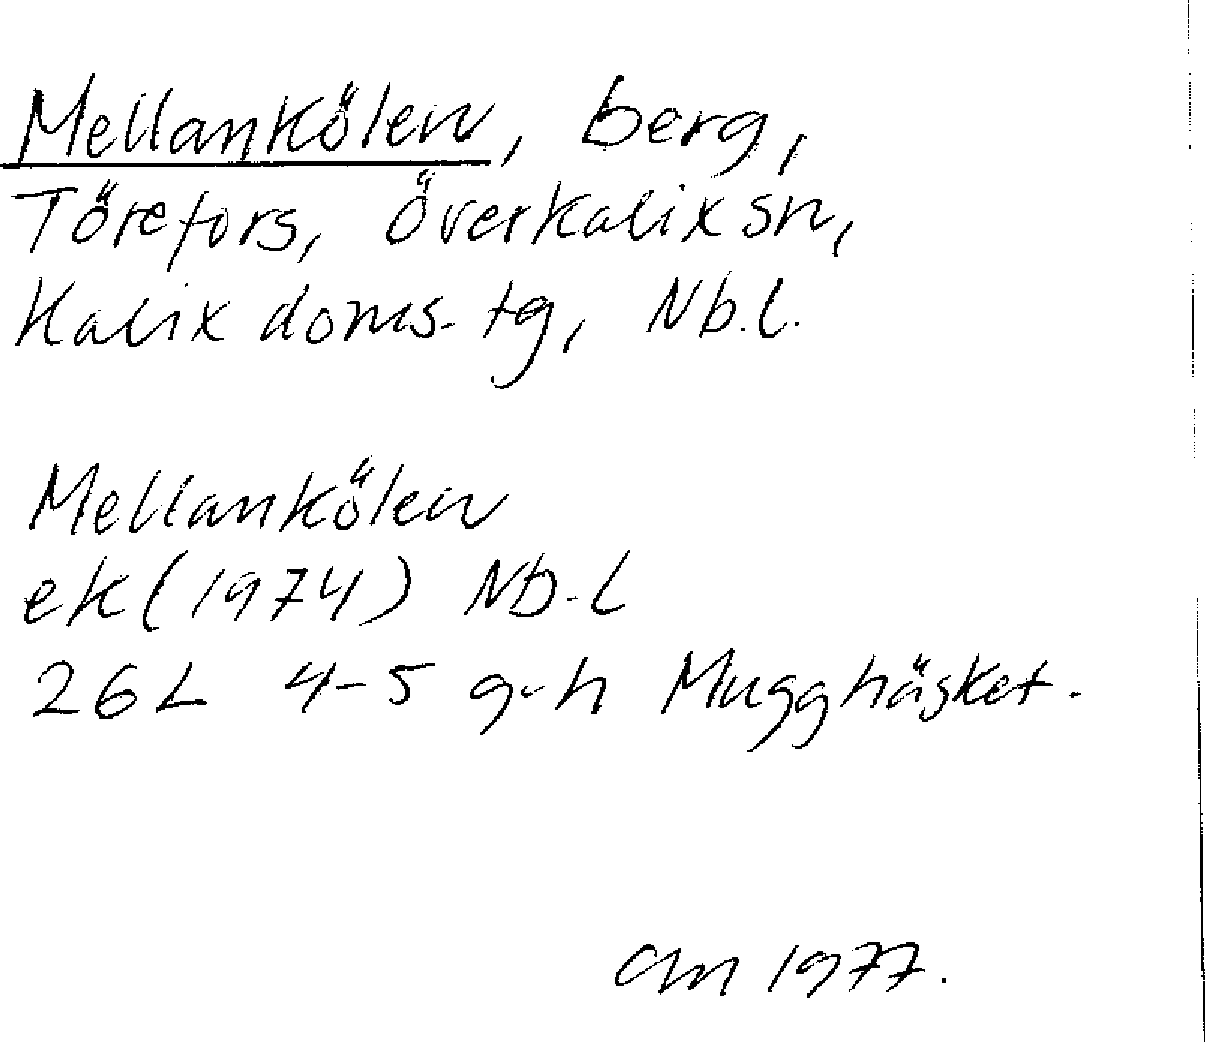 Mellankölen, berg,
Törefors, Överkalix sn,
Kalix doms. tg, Nb.l.
Mellankölen
ek (1974) Nb.l
26L 4-5 g-h Mugghäsket.
1977.